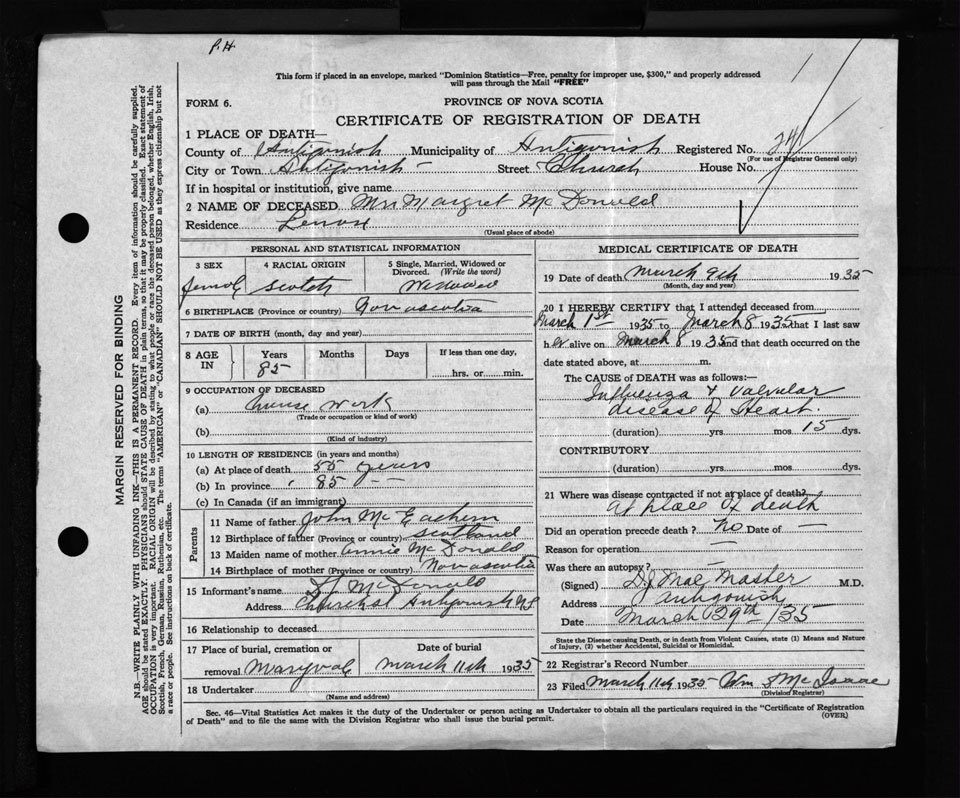 P.H.
This form if placed in an envelope, marked "Dominion Statistics—Free, penalty for improper use, $300," and properly addressed
will pass through the Mail "FREE"
FORM 6.
PROVINCE OF NOVA SCOTIA
CERTIFICATE OF REGISTRATION OF DEATH
1 PLACE OF DEATH—
County of Antigonish Municipality of Antigonish Registered No. 24
(For use of Registrar General only)
City or Town Antigonish Street Church House No.
If in hospital or institution, give name
2 NAME OF DECEASED Mrs Margret McDonald
Residence
(Usual place of abode)
PERSONAL AND STATISTICAL INFORMATION
3 SEX 4 RACIAL ORIGIN 5 Single, Married, Widowed or Divorced. (Write the word)
Female Scotch Widowed
6 BIRTHPLACE (Province or country) Nova scotia
7 DATE OF BIRTH (month, day and year)
8 AGE IN Years Months Days If less than one day,
85 hrs. or min.
9 OCCUPATION OF DECEASED
(a) house work
(Trade or occupation or kind of work)
(b)
(Kind of industry)
10 LENGTH OF RESIDENCE (in years and months)
(a) At place of death 55 years
(b) In province 85 — —
(c) In Canada (if an immigrant)
Parents
11 Name of father John McEachern
12 Birthplace of father (Province or country) Scotland
13 Maiden name of mother Annie McDonald
14 Birthplace of mother (Province or country) Nova scotia
15 Informant's name McDonald
Address Church st Antigonish NS
16 Relationship to deceased
17 Place of burial, cremation or removal Maryvale
Date of burial March 11th 1935
18 Undertaker
(Name and address)
MEDICAL CERTIFICATE OF DEATH
19 Date of death March 9th 1935
(Month, day and year)
20 I HEREBY CERTIFY that I attended deceased from
March 1st 1935 to March 8 1935 that I last saw
her alive on March 8 1935 and that death occurred on the
date stated above, at m.
The CAUSE OF DEATH was as follows:—
Influenza & valvular
disease of Heart.
(duration) yrs. mos. 15 dys.
CONTRIBUTORY
(duration) yrs. mos. dys.
21 Where was disease contracted if not at place of death?
At place of death
Did an operation precede death? No Date of —
Reason for operation —
Was there an autopsy?
(Signed) D.J. MacMaster M.D.
Address Antigonish
Date March 29th/35
State the Disease causing Death, or in death from Violent Causes, state (1) Means and Nature
of Injury, (2) whether Accidental, Suicidal or Homicidal.
22 Registrar's Record Number
23 Filed March 11th 1935 Wm McIsaac
(Division Registrar)
Sec. 46—Vital Statistics Act makes it the duty of the Undertaker or person acting as Undertaker to obtain all the particulars required in the "Certificate of Registration
of Death" and to file the same with the Division Registrar who shall issue the burial permit.
(OVER)
MARGIN RESERVED FOR BINDING
N.B.—WRITE PLAINLY WITH UNFADING INK—THIS IS A PERMANENT RECORD. Every item of information should be carefully supplied.
AGE should be stated EXACTLY. PHYSICIANS should STATE CAUSE OF DEATH in plain terms, so that it may be properly classified. Exact statement of
OCCUPATION is very important. RACIAL ORIGIN will be described by stating to what people or race the deceased person belonged, whether English, Irish,
Scottish, French, German, Russian, Ruthenian, etc. The terms "AMERICAN" or "CANADIAN" SHOULD NOT BE USED as they express citizenship but not
a race or people. See instructions on back of certificate.